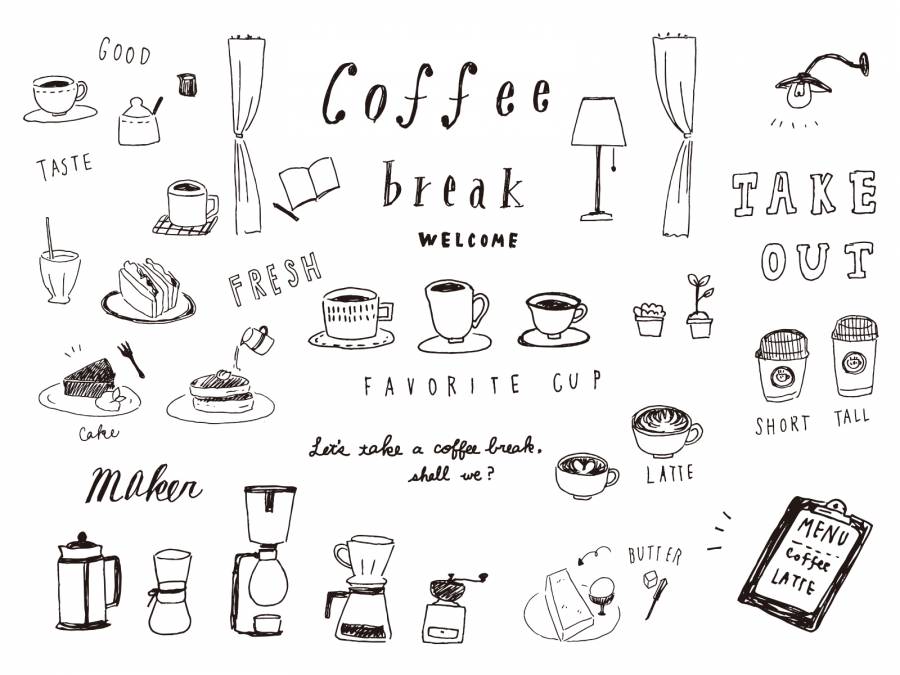 GOOD
TASTE
Coffee
break
WELCOME
TAKE
OUT
FRESH
FAVORITE CUP
SHORT
TALL
Cake
Let's take a coffee break.
shell we?
LATTE
maker
BUTTER
MENU
coffee
LATTE